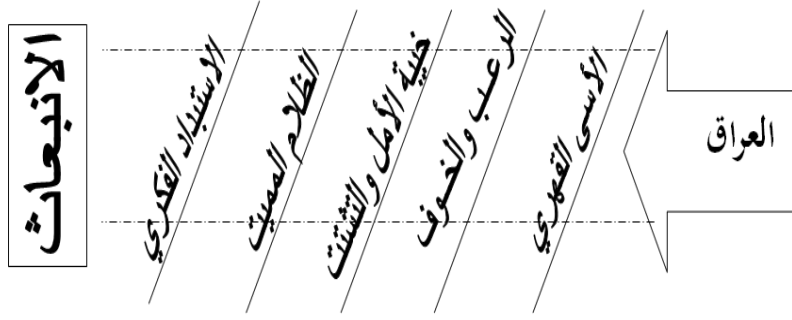 العراق
الأسى القهري
الرعب والخوف
خيبة الأمل والتشتت
الظلام المميت
الاستبداد الفكري
الانبعاث